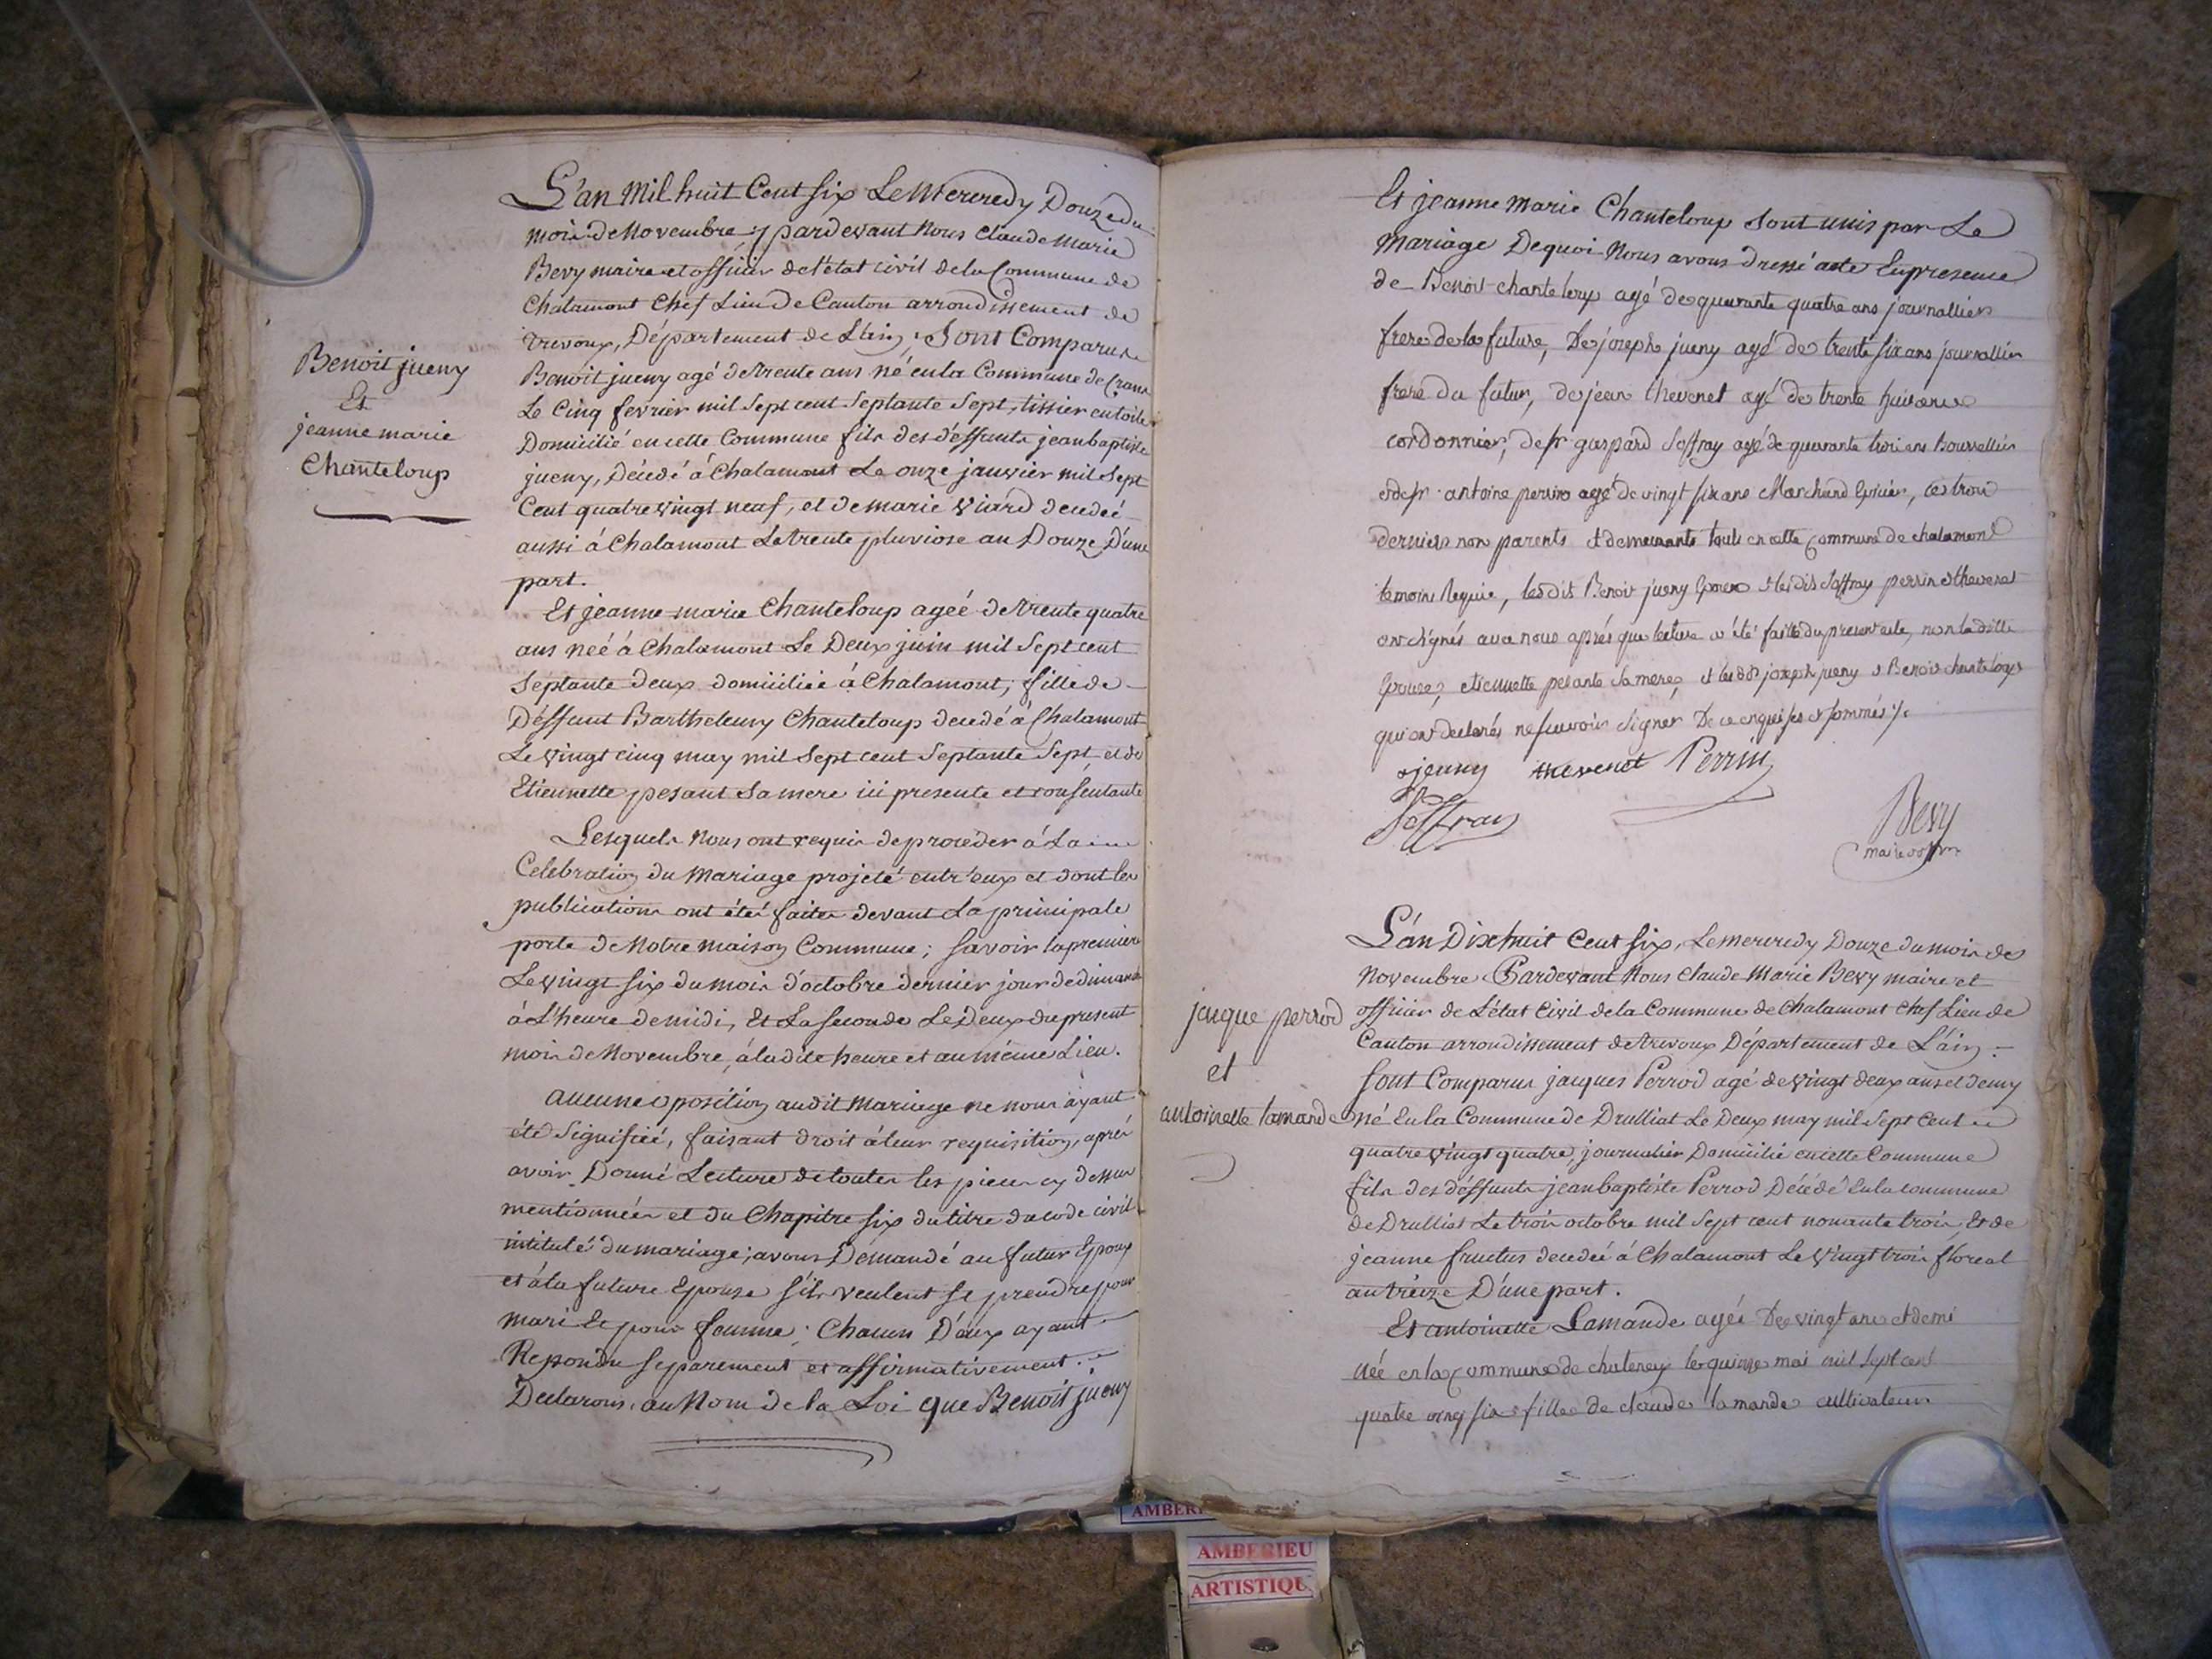 Benoit jueny
Et
jeanne marie
Chanteloup
L'an Mil huit Cent Six Le Mercredy Douze du
mois de Novembre, pardevant Nous Claude Marie
Bevy maire et officier de l'état civil de la Commune de
Chalamont Chef Lieu de Canton arrondissement de
Trevoux, Département de L'ain; Sont Comparus
Benoit jueny agé de trente ans né en la Commune de Crans
Le Cinq fevrier mil Sept cent Septante Sept, tissier en toile
Domicilié en cette Commune fils des déffunts jean baptiste
jueny, Décédé à Chalamont Le onze janvier mil Sept
Cent quatre vingt neuf, et de marie Viard decedeé
aussi à Chalamont Le trente pluviose an Douze D'une
part.
Et jeanne marie Chanteloup ageé de trente quatre
ans neé à Chalamont Le Deux juin mil Sept cent
Septante deux domiciliée à Chalamont; fille de
Déffunt Barthelemy Chanteloup decedé à Chalamont
Le vingt cinq may mil Sept cent Septante Sept, et de
Etiennette pesant Sa mere ici presente et consentante
Lesquels Nous ont requis de proceder à La
Celebration du Mariage projeté entr'eux et dont les
publications ont été faites devant La principale
porte de Notre maison Commune; Savoir la premiere
Le vingt six du mois d'octobre dernier jour de dimanche
à L'heure de midi, Et La Seconde Le Deux du present
mois de Novembre, à la dite heure et au même Lieu.
Aucune oposition audit Mariage ne nous ayant
été Signifieé, faisant droit à leur requisition, aprés
avoir Donné Lecture de toutes les pieces cy dessus
mentionnées et du Chapitre six du titre du code civil
intitulé du mariage; avons Demandé au futur Epoux
et à la future Epouse s'ils veulent se prendre pour
mari Et pour femme; Chacun D'eux ayant
Repondu Separement et affirmativement
Declarons, au Nom de la Loi que Benoit jueny
Et jeanne Marie Chanteloup Sont unis par Le
Mariage De quoi Nous avons dressé acte En presence
de Benoit chanteloup agé de quarante quatre ans journallier
frere de la future, De joseph jueny agé de trente six ans journallier
frere du futur, de jean thevenet agé de trente huit ans
cordonnier, de sr gaspard Joffray agé de quarante trois ans Bourrellier
et de sr antoine perrin agé de vingt six ans Marchand Epicier, ces trois
derniers non parents et demeurants touts en cette commune de chalamont
temoins Requis, les dit Benoit jueny Epoux et les dis Joffray perrin et thevenet
ont signés avec nous aprés que lecture a été faitte du present acte, non la ditte
Epouse, etiennette pesante sa mere, et les dits joseph jueny et Benoit chanteloup
qui ont declarés ne scavoir signer De ce enquis et sommés %
jueny thevenet Perrin
Joffray
Bevy
maire
jacque perrod
et
antoinette lamande
L'an Dix huit Cent Six, Le mercredy Douze du mois de
Novembre Pardevant Nous Claude Marie Bevy maire et
officier de L'état Civil de la Commune de Chalamont Chef Lieu de
Canton arrondissement de trevoux Département de L'ain:
Sont Comparus jacques Perrod agé de vingt deux ans et demy
né En la Commune de Drulliat Le Deux may mil Sept Cent
quatre vingt quatre, journalier Domicilié en cette Commune
fils des déffunts jean baptiste Perrod Décédé En la commune
de Drulliat Le trois octobre mil Sept cent nonante trois, Et de
jeanne fructus decedeé à Chalamont Le vingt trois floreal
an treize D'une part.
Et antoinette Lamande agée De vingt ans et demi
née en la commune de chateney le quinze mai mil Sept cent
quatre vingt six fille de claude lamande cultivateur
AMBERI
AMBERIEU
ARTISTIQU